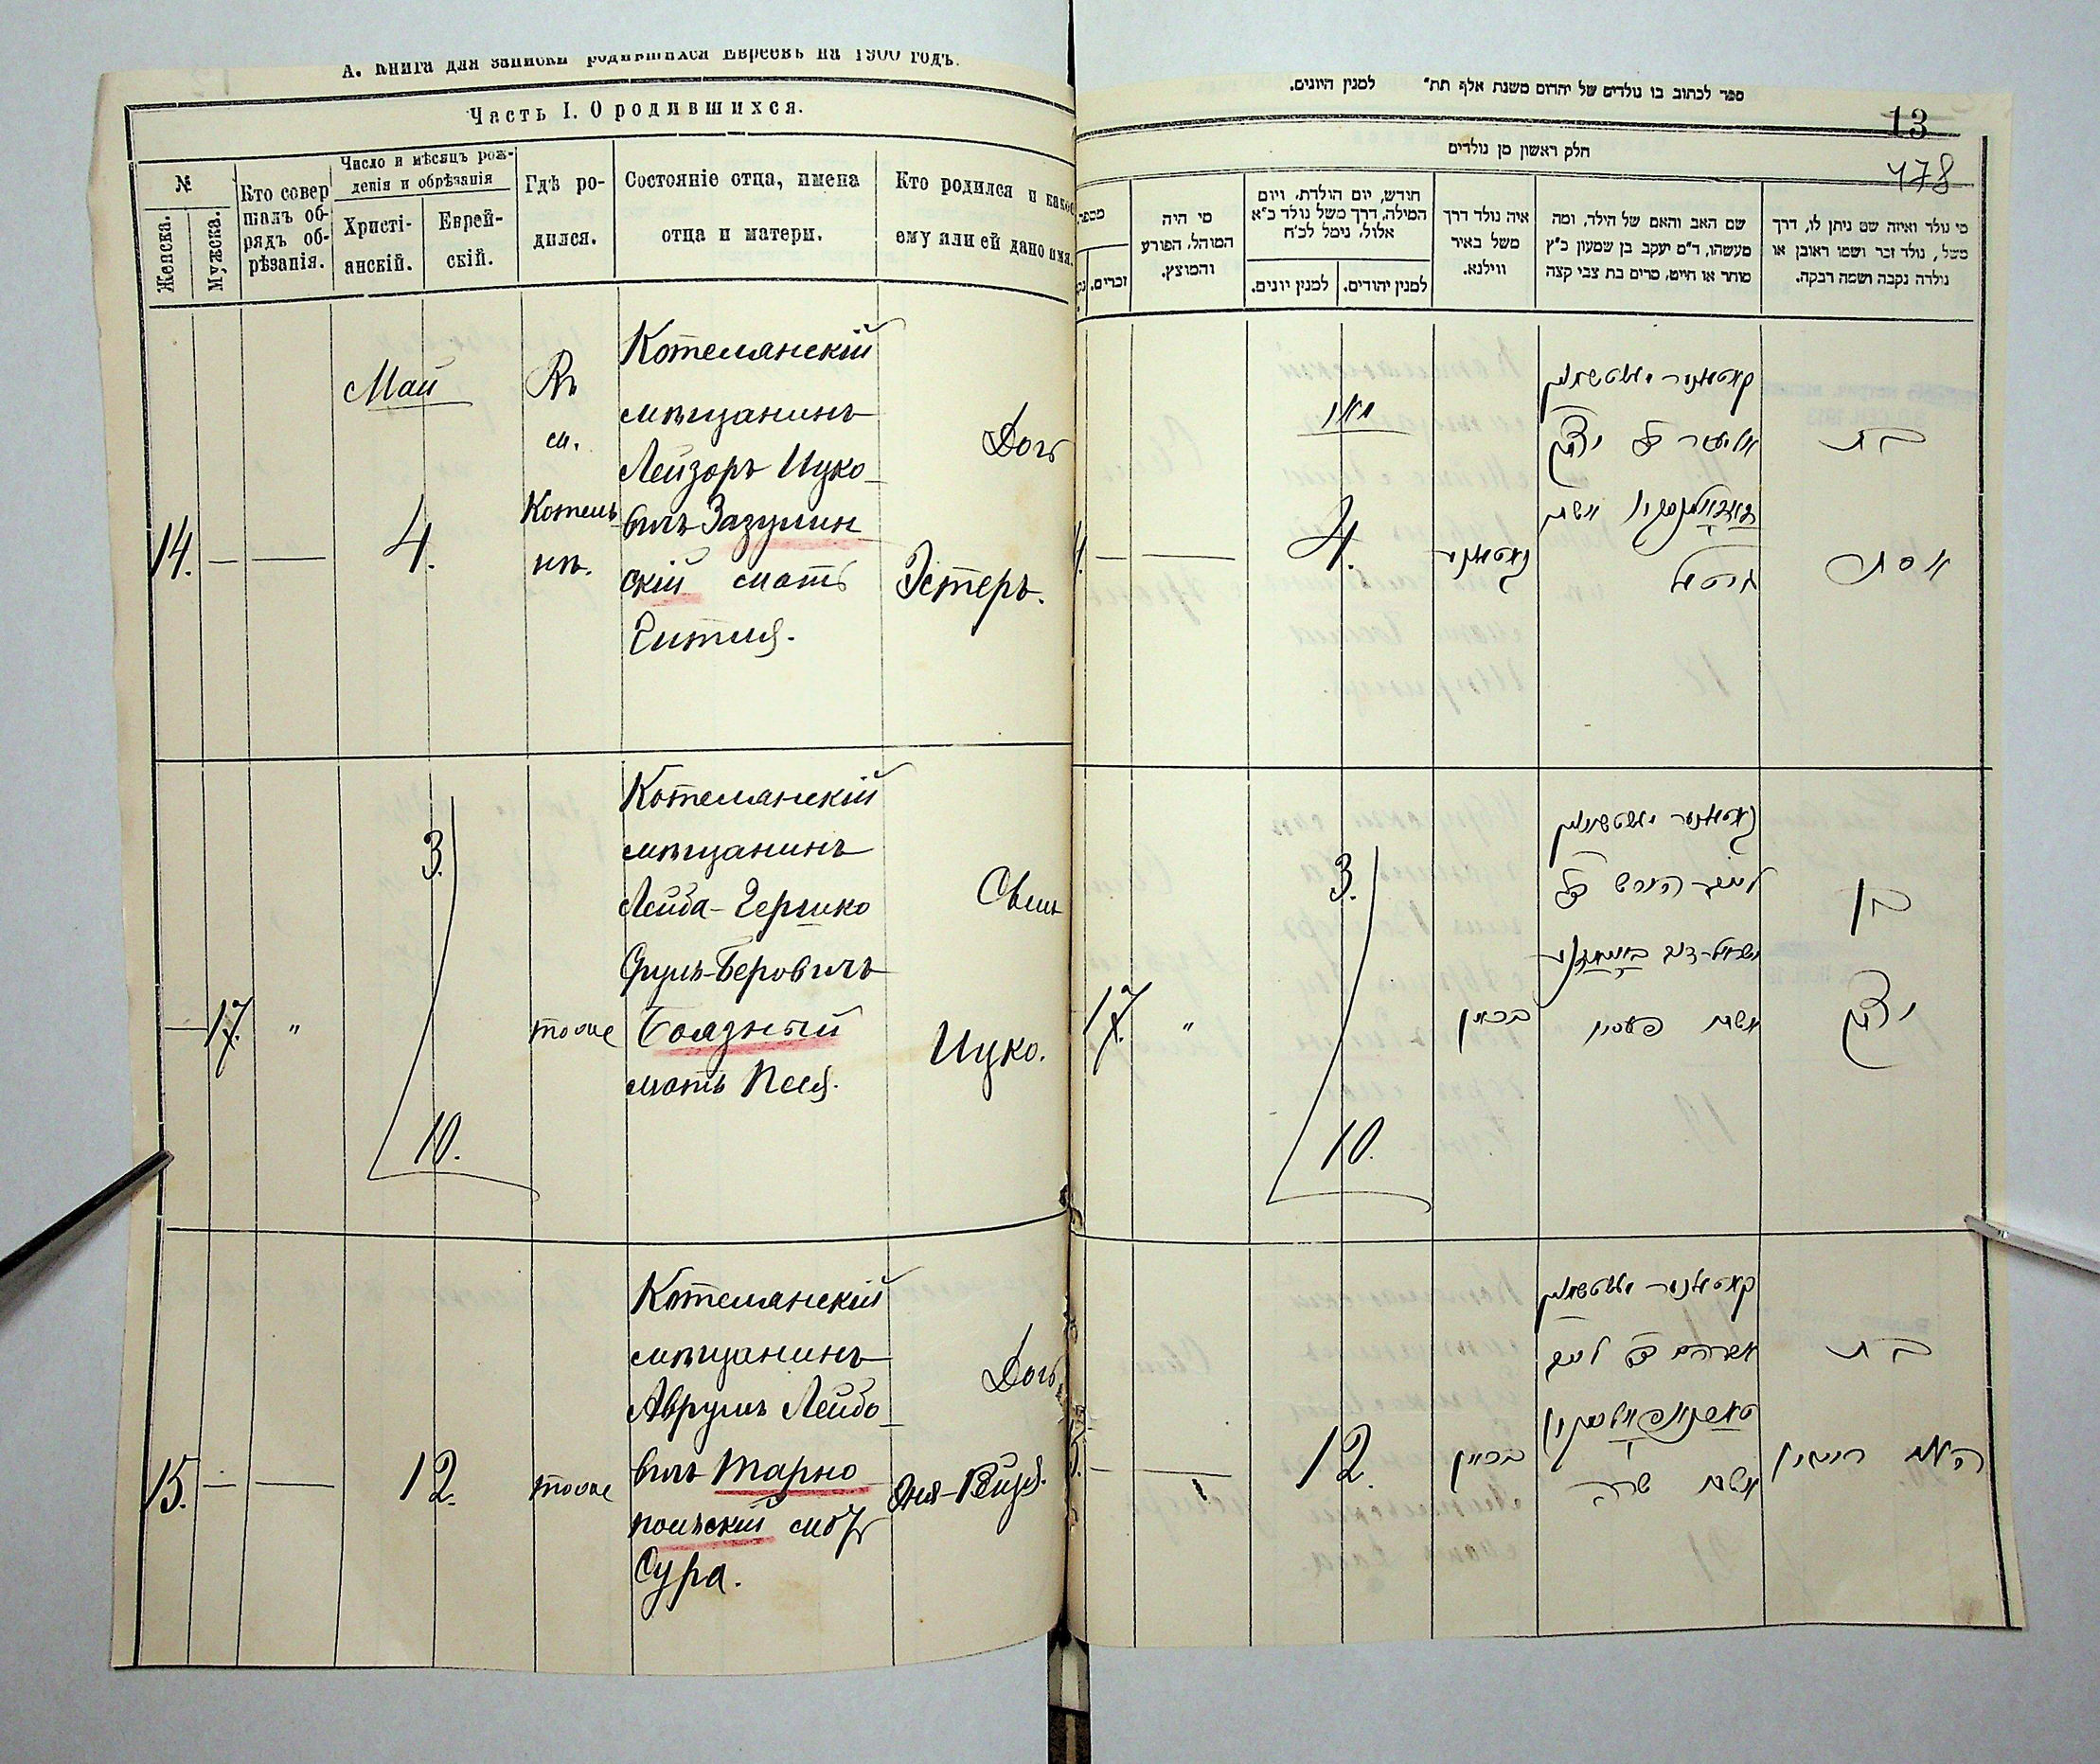 А. Книга для записки родившихся Евреевъ на 1900 годъ.
Часть I. О родившихся.
№
Женска.
Мужска.
Кто совер
шалъ об-
рядъ об-
рѣзанія.
Число и мѣсяцъ рож-
денія и обрѣзанія
Христі-
анскій.
Еврей-
скій.
Гдѣ ро-
дился.
Состояніе отца, имена
отца и матери.
Кто родился и какое
ему или ей дано имя.
14.
—
—
Май
4.
Въ
м.
Котель
нѣ.
Котелянскій
мѣщанинъ
Лейзоръ Ицко-
вичъ Зазулин
скій мать
Гитля.
Дочь
Эстеръ.
—
17.
"
3.
10.
тоже
Котелянскій
мѣщанинъ
Лейба-Гершко
Срулъ-Беровичъ
Боязный
мать Песя.
Сынъ
Ицко.
15.
—
—
12.
тоже
Котелянскій
мѣщанинъ
Аврумъ Лейбо-
вичъ Тарно
польскій мать
Сура.
Дочь
ספר לכתוב בו נולדים של יהדום משנת אלף תת״ למנין היונים.
13
478
חלק ראשון מן נולדים
מי נולד ואיזה שם ניתן לו, דרך
משל, נולד זכר ושמו ראובן או
נולדה נקבה ושמה רבקה.
שם האב והאם של הילד, ומה
מעשהו, ד״ם יעקב בן שמעון כ״ץ
סוחר או חייט, מרים בת צבי קצה
איה נולד דרך
משל באיר
ווילנא.
חודש, יום הולדת, ויום
המילה, דרך משל נולד כ״א
אלול, נימל לכ״ח
למנין יהודים.
למנין יונים.
מי היה
המוהל, הפורע
והמוצץ.
מספר
זכרים.
בת
אסתר
אליעזר בן יצחק
4.
—
—
בן
יצחק
3.
10.
17.
"
בת
אברהם בן לייב
אשתו שרה
12.
—
—